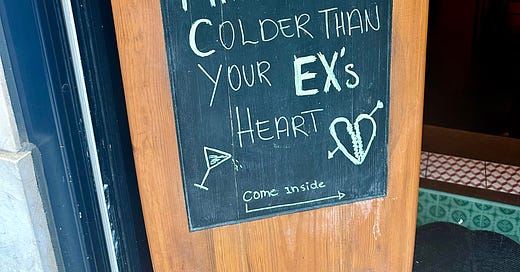 COLDER THAN
YOUR EX'S
HEART
Come Inside